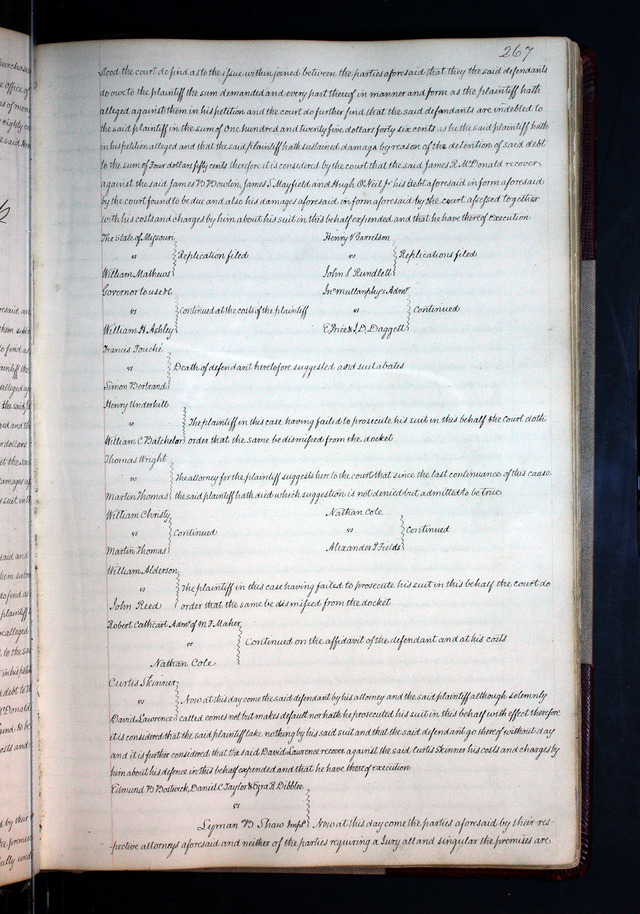 267
stood the court do find as to the issue within joined between the parties aforesaid that they the said defendants
do owe to the plaintiff the sum demanded and every part thereof in manner and form as the plaintiff hath
alleged against them in his petition and the court do further find that the said defendants are indebted to
the said plaintiff in the sum of one hundred and twenty five dollars forty six cents as he the said plaintiff hath
in his petition alleged and that the said plaintiff hath sustained damage by reason of the detention of said debt
to the sum of Four dollars fifty cents therefore it is considered by the court that the said James R. McDonald recover
against the said James B Bowlin, James S. Mayfield and Hugh O'Neil Jr his debt aforesaid in form aforesaid
by the court found to be due and also his damages aforesaid in form aforesaid by the court assessed together
with his costs and charges by him about his suit in this behalf expended and that he have thereof execution
The State of Missouri
vs Replication filed
William Mathews
Henry V Garretson
vs Replications filed
John S Rundlett
Governor to use &c
vs Continued at the costs of the plaintiff
William H. Ashley
Jno Mullanphy's Admr
vs Continued
E Price & J. D. Daggett
Francis Fouché
vs Death of defendant heretofore suggested and suit abates
Simon Bertrand
Henry Underhill
vs The plaintiff in this case having failed to prosecute his suit in this behalf the Court doth
William C. Batchelor order that the same be dismissed from the docket
Thomas Wright
vs The attorney for the plaintiff suggests here to the court that since the last continuance of this cause
Martin Thomas the said plaintiff hath died which suggestion is not denied but admitted to be true
William Christy
vs Continued
Martin Thomas
Nathan Cole
vs Continued
Alexander P Fields
William Alderson
vs The plaintiff in this case having failed to prosecute his suit in this behalf the court do
John Reed order that the same be dismissed from the docket
Robert Cathcart Admr of M. F. Maher
vs Continued on the affidavit of the defendant and at his costs
Nathan Cole
Curtis Skinner
vs Now at this day come the said defendant by his attorney and the said plaintiff although solemnly
David Lawrence called comes not but makes default nor hath he prosecuted his suit in this behalf with effect therefore
it is considered that the said plaintiff take nothing by his said suit and that the said defendant go thereof without day
and it is further considered that the said David Lawrence recover against the said Curtis Skinner his costs and charges by
him about his defence in this behalf expended and that he have thereof execution
Edmund B Bostwick, Daniel C Taylor & Ezra R Dibblee
vs
Lyman B Shaw Impd Now at this day come the parties aforesaid by their res-
pective attorneys aforesaid and neither of the parties requiring a Jury all and singular the premises are